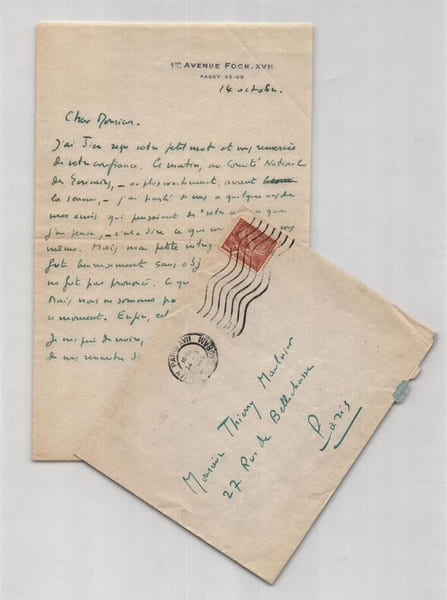 1bis AVENUE FOCH. XVIe
PASSY 23-09
14 octobre.
Cher Monsieur.
J'ai bien reçu votre petit mot et vous remercie
de votre confiance. Ce matin, au Comité National
des Ecrivains, - ou plus exactement, avant
la séance, - j'ai parlé de vous à quelques uns de
mes amis qui pensaient de votre cas ce que
j'en pense, c'est à dire ce que vous
même. Mais ma petite
fut heureusement sans obj
ne fut pas prononcé. Ce qu
Mais nous ne sommes pa
ce moment. Enfin, cel
Je
de vous
PARIS XVII
Monsieur Thierry Maulnier
27 Rue de Bellechasse
Paris